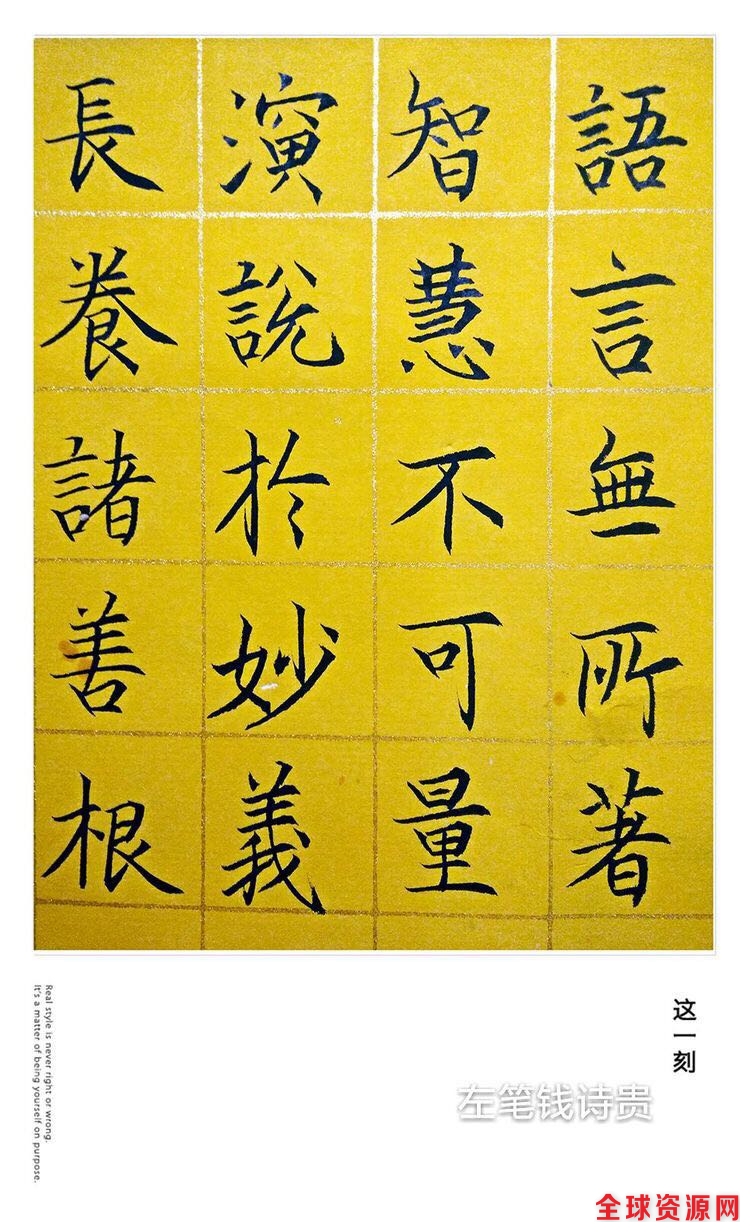 語言無所著
智慧不可量
演說於妙義
長養諸善根
这一刻
Real style is never right or wrong.
It's a matter of being yourself on purpose.
左笔钱诗贵
全球资源网